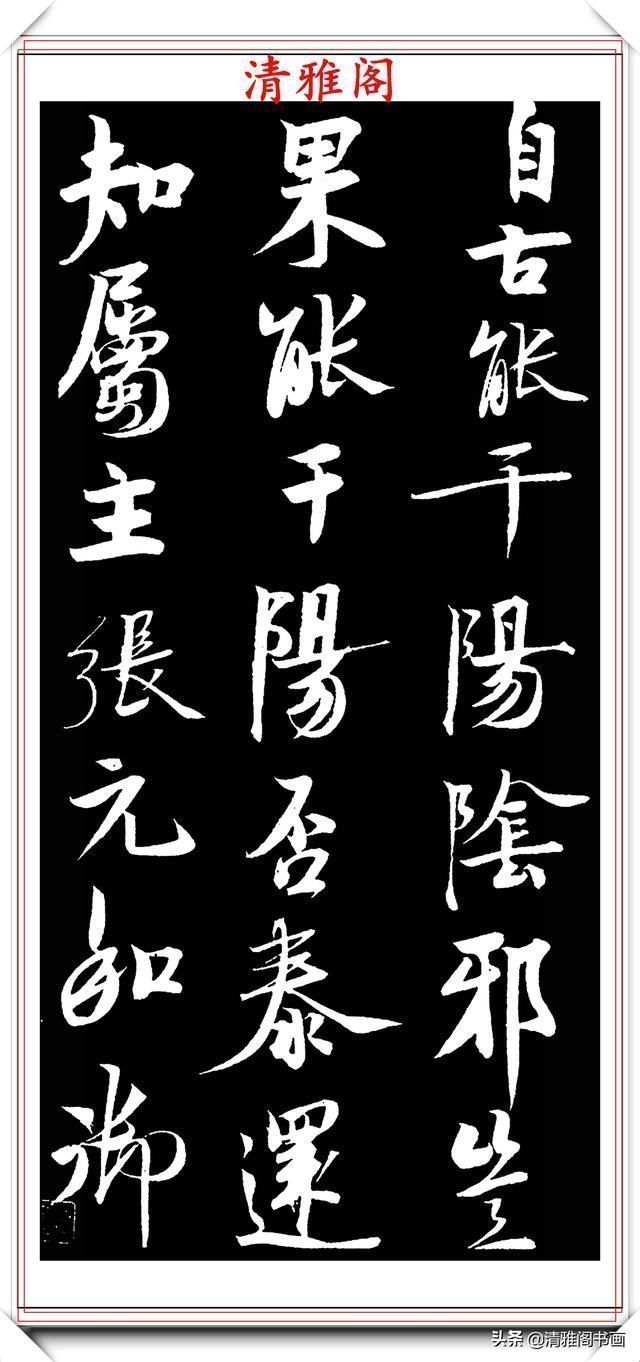 清雅阁
自古能干陽陰邪豈
果能干陽否泰還
知屬主張元和御
头条@清雅阁书画